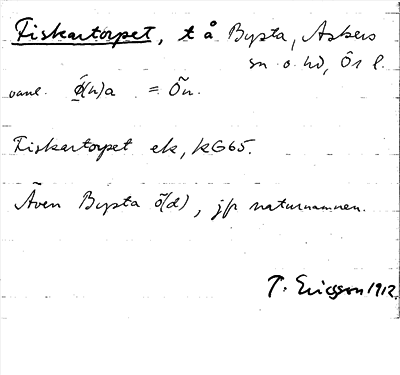 Fiskartorpet, t å Bysta, Askers
sn o. hd, Ör l.
vanl. (n)a = Ön.
Fiskartorpet ek, kG65.
Även Bysta ö(d), jfr naturnamnen.
T. Ericsson 1912.